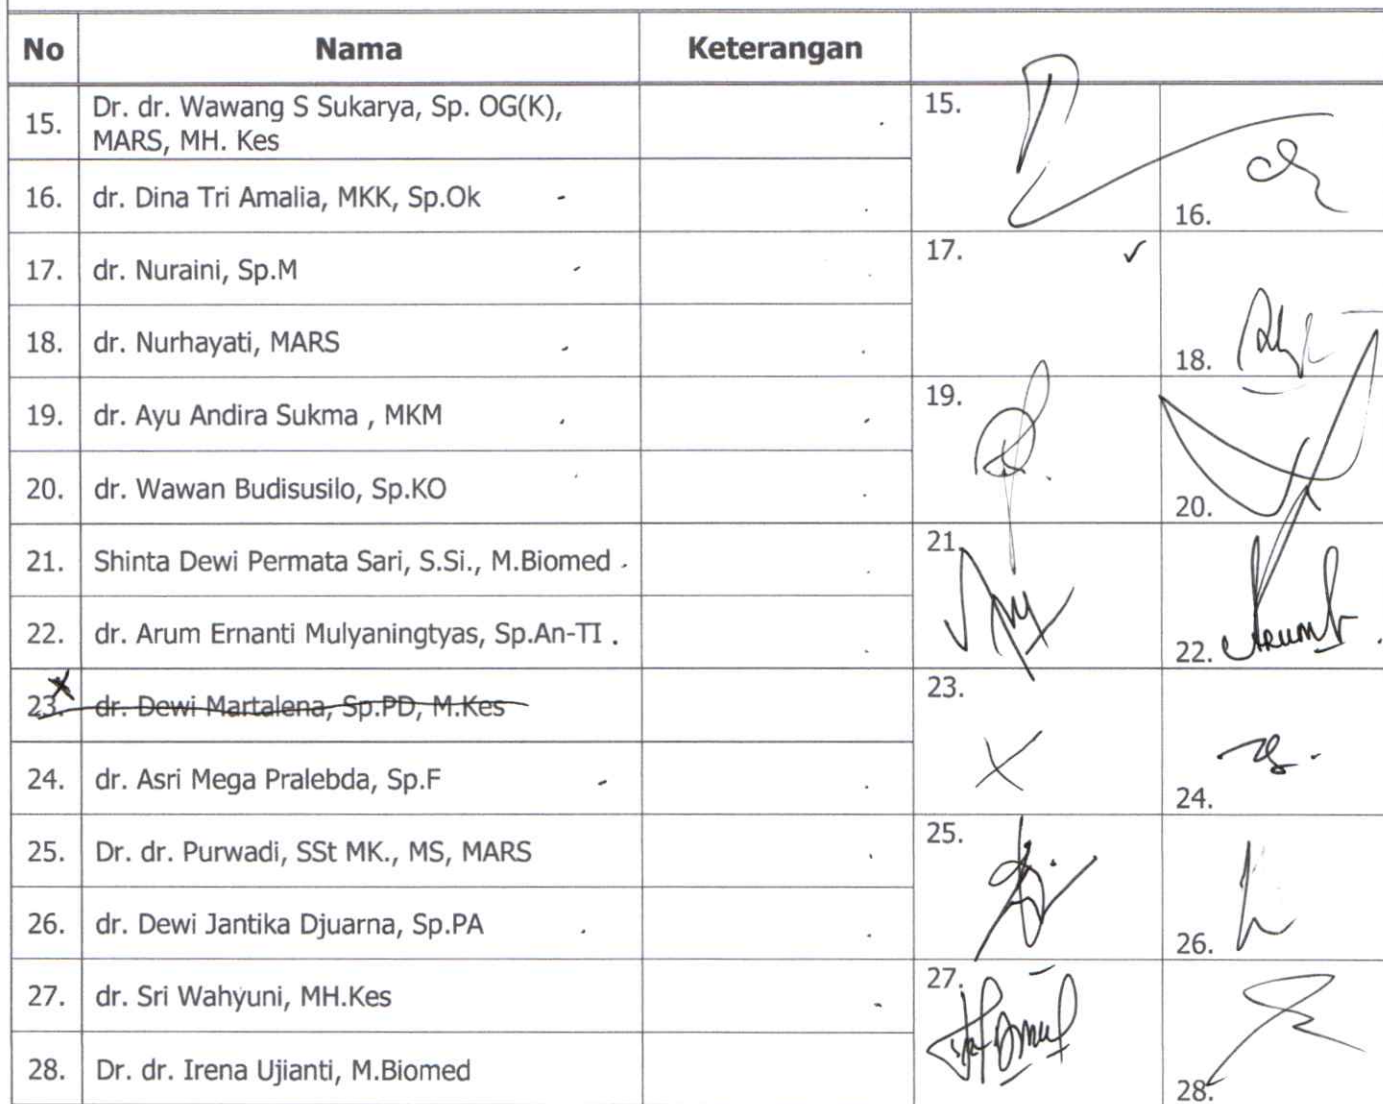 No Nama Keterangan
15. Dr. dr. Wawang S Sukarya, Sp. OG(K),
MARS, MH. Kes
15.
16. dr. Dina Tri Amalia, MKK, Sp.Ok
16.
17. dr. Nuraini, Sp.M
17. ✓
18. dr. Nurhayati, MARS
18.
19. dr. Ayu Andira Sukma , MKM
19.
20. dr. Wawan Budisusilo, Sp.KO
20.
21. Shinta Dewi Permata Sari, S.Si., M.Biomed
21.
22. dr. Arum Ernanti Mulyaningtyas, Sp.An-TI
22.
23. dr. Dewi Martalena, Sp.PD, M.Kes
23.
24. dr. Asri Mega Pralebda, Sp.F
24.
25. Dr. dr. Purwadi, SSt MK., MS, MARS
25.
26. dr. Dewi Jantika Djuarna, Sp.PA
26.
27. dr. Sri Wahyuni, MH.Kes
27.
28. Dr. dr. Irena Ujianti, M.Biomed
28.